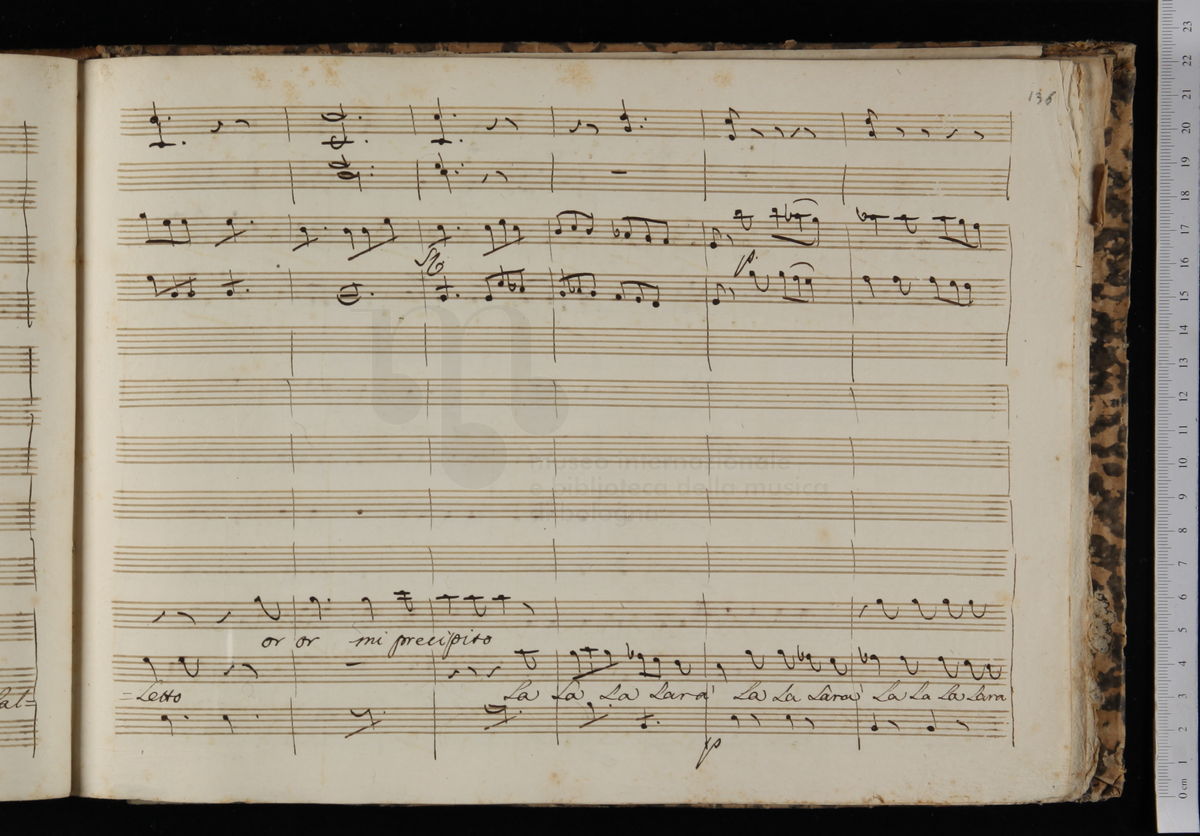 136
museo internazionale
e biblioteca della musica
di bologna
or or mi precipito
lat=
=letto
La La La Lara' La La Lara' La La La Lara
p
p
23
22
21
20
19
18
17
16
15
14
13
12
11
10
9
8
7
6
5
4
3
2
1
0 cm